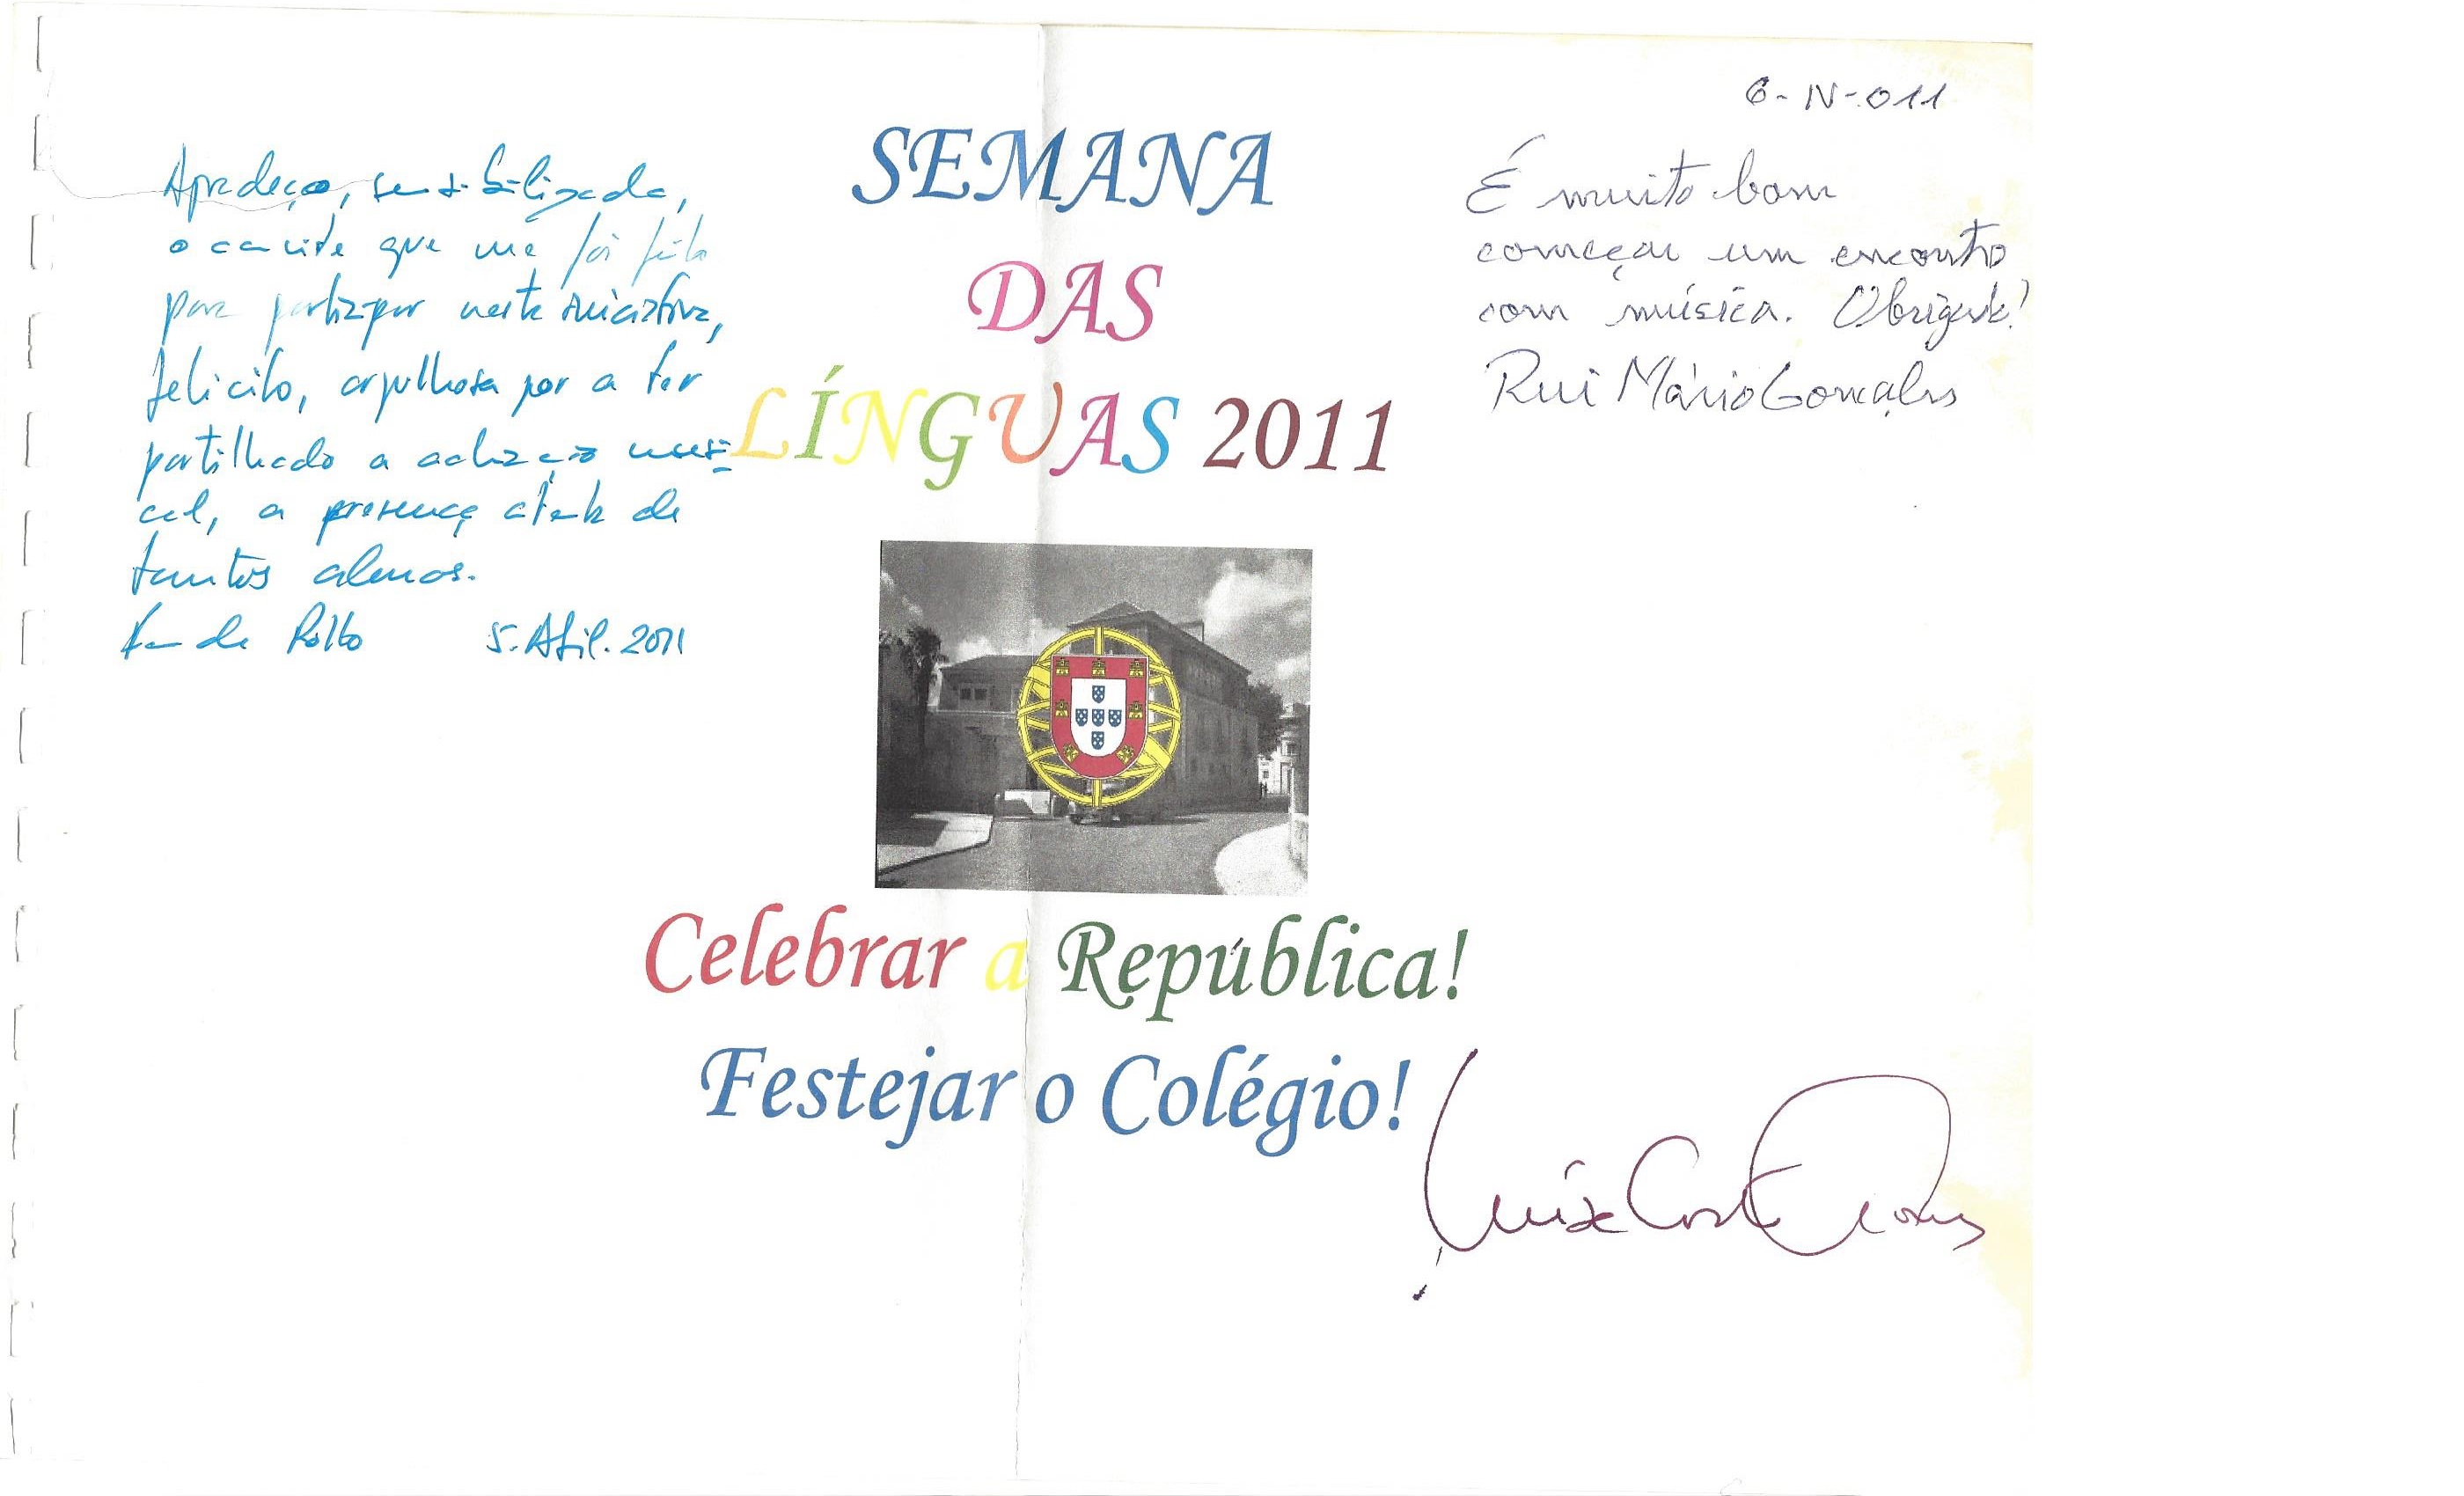 Agradeço, sensibilizada,
o convite que me foi feito
para participar nesta iniciativa,
felicito, orgulhosa por a ter
partilhado a actuação musi-
cal, a presença atenta de
tantos alunos.
Rollo 5. Abril. 2011
SEMANA
DAS
LÍNGUAS 2011
Celebrar a República!
Festejar o Colégio!
6-IV-011
É muito bom
começar um encontro
com música. Obrigado!
Rui Mário Gonçalves